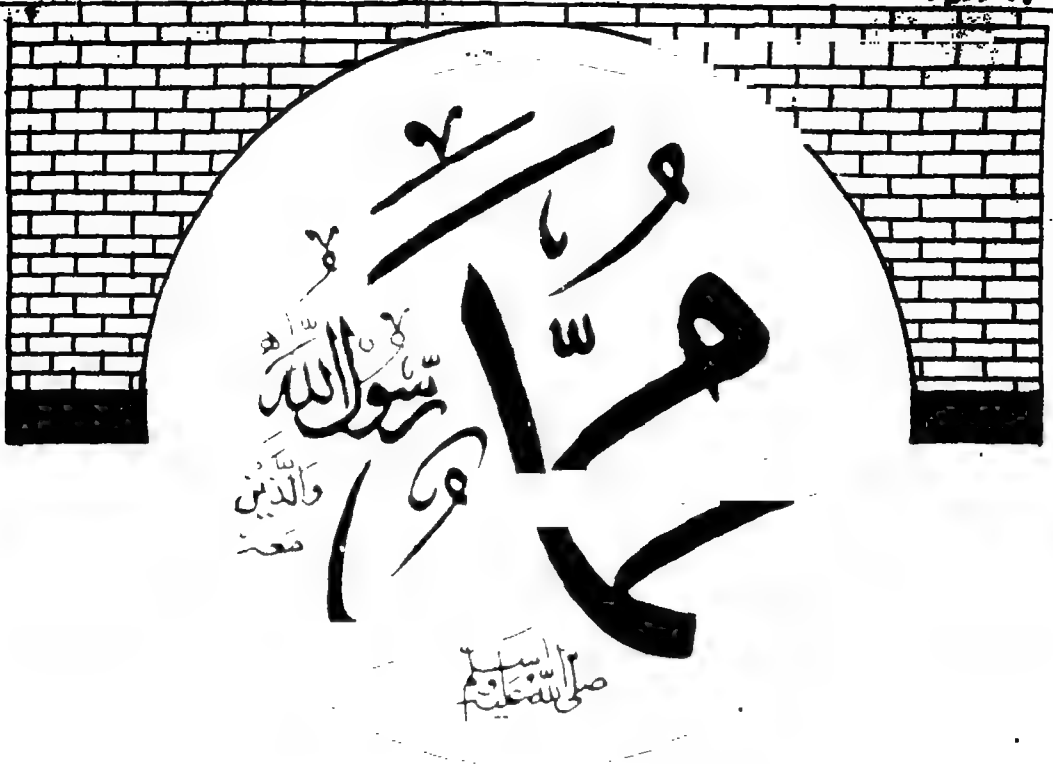 محمد
رسول الله
وَالَّذِيْنَ
مَعَهٗ
صلى الله عليه وسلم